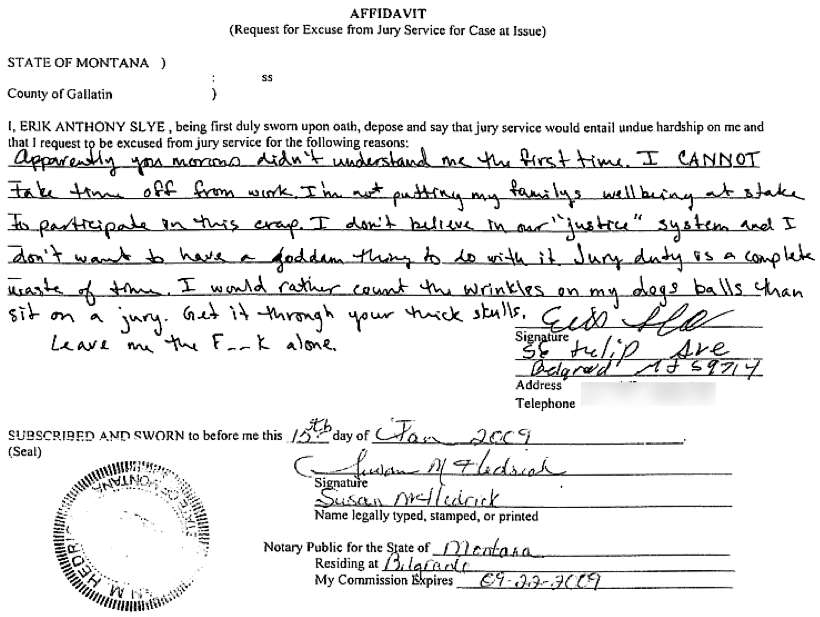 AFFIDAVIT
(Request for Excuse from Jury Service for Case at Issue)
STATE OF MONTANA )
: ss
County of Gallatin )
I, ERIK ANTHONY SLYE , being first duly sworn upon oath, depose and say that jury service would entail undue hardship on me and
that I request to be excused from jury service for the following reasons:
Apparently you morons didn't understand me the first time. I CANNOT
take time off from work. I'm not putting my familys wellbeing at stake
to participate in this crap. I don't believe in our "justice" system and I
don't want to have a goddam thing to do with it. Jury duty is a complete
waste of time. I would rather count the wrinkles on my dogs balls than
sit on a jury. Get it through your thick skulls.
Leave me the F__k alone.
Signature
56 Tulip Ave
Belgrade MT 59714
Address
Telephone
SUBSCRIBED AND SWORN to before me this 15th day of Jan 2009
(Seal)
Susan M Hedrick
Signature
Susan M Hedrick
Name legally typed, stamped, or printed
Notary Public for the State of Montana
Residing at Belgrade
My Commission Expires 09-22-2009